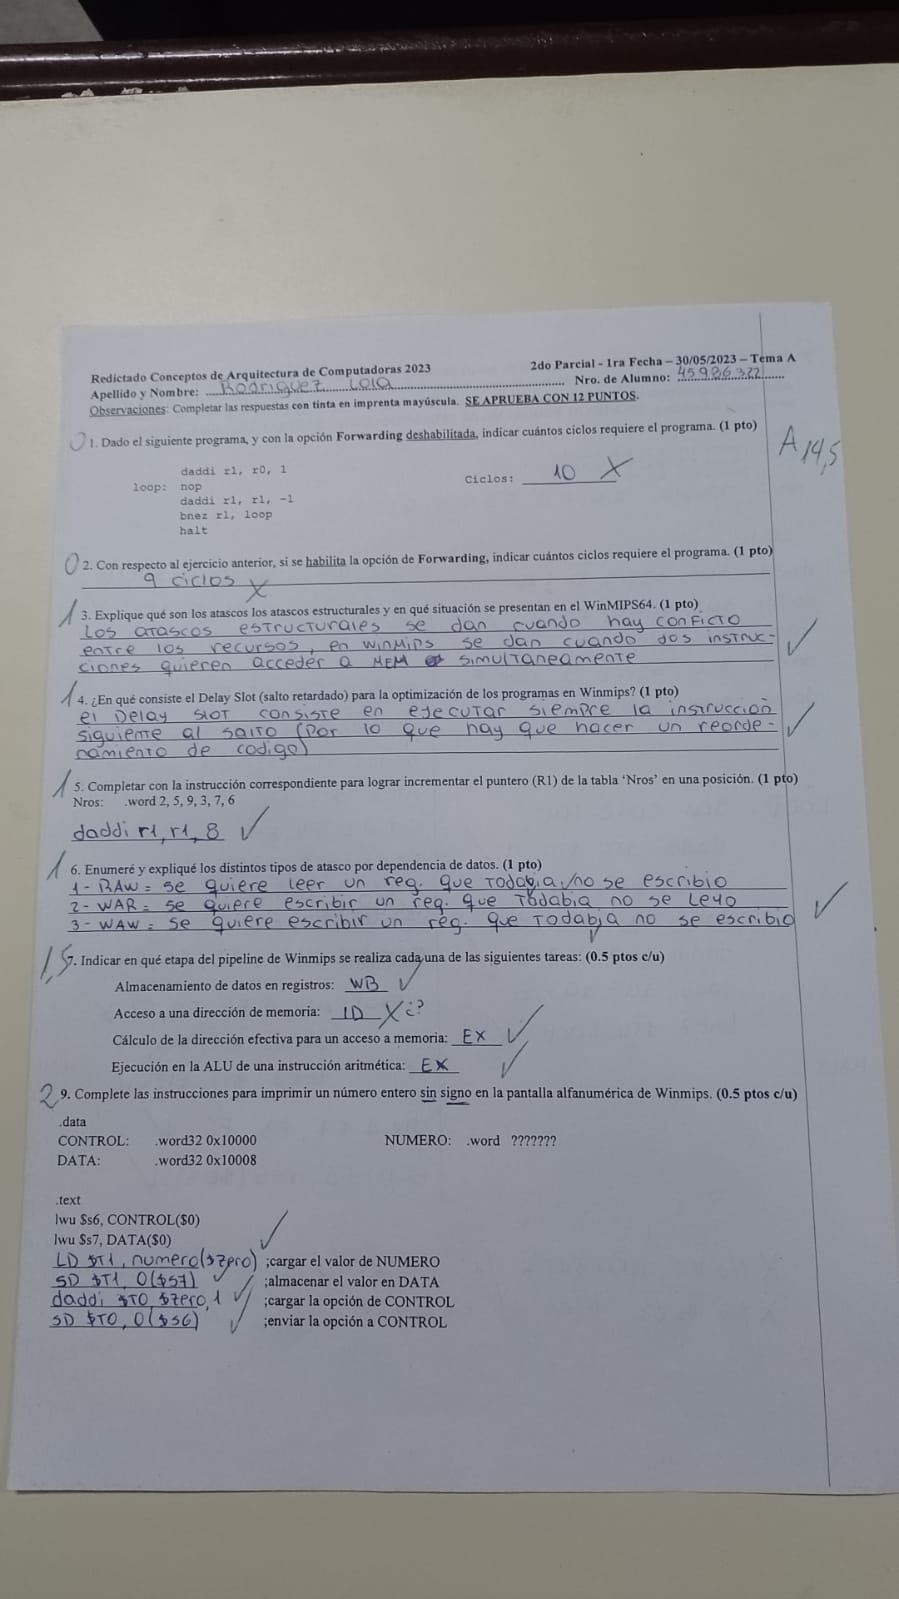 Redictado Conceptos de Arquitectura de Computadoras 2023
2do Parcial - 1ra Fecha – 30/05/2023 – Tema A
Apellido y Nombre: Rodriguez Lola
Nro. de Alumno: 45986322
Observaciones: Completar las respuestas con tinta en imprenta mayúscula. SE APRUEBA CON 12 PUNTOS.
0 1. Dado el siguiente programa, y con la opción Forwarding deshabilitada, indicar cuántos ciclos requiere el programa. (1 pto)
A 14,5
daddi r1, r0, 1
loop: nop
daddi r1, r1, -1
bnez r1, loop
halt
Ciclos: 10 X
0 2. Con respecto al ejercicio anterior, si se habilita la opción de Forwarding, indicar cuántos ciclos requiere el programa. (1 pto)
9 ciclos X
1 3. Explique qué son los atascos los atascos estructurales y en qué situación se presentan en el WinMIPS64. (1 pto)
Los atascos estructurales se dan cuando hay conficto
entre los recursos, en winMips se dan cuando dos instruc-
ciones quieren acceder a MEM simultaneamente ✓
1 4. ¿En qué consiste el Delay Slot (salto retardado) para la optimización de los programas en Winmips? (1 pto)
el Delay slot consiste en ejecutar siempre la instruccion
siguiente al salto (por lo que hay que hacer un reorde-
namiento de codigo) ✓
1 5. Completar con la instrucción correspondiente para lograr incrementar el puntero (R1) de la tabla ‘Nros’ en una posición. (1 pto)
Nros: .word 2, 5, 9, 3, 7, 6
daddi r1, r1, 8 ✓
1 6. Enumeré y expliqué los distintos tipos de atasco por dependencia de datos. (1 pto)
1- RAW = se quiere leer un reg. que todabia no se escribio
2- WAR = se quiere escribir un reg. que todabia no se leyo
3- WAW = se quiere escribir un reg. que todabia no se escribio ✓
1,5 7. Indicar en qué etapa del pipeline de Winmips se realiza cada una de las siguientes tareas: (0.5 ptos c/u)
Almacenamiento de datos en registros: WB ✓
Acceso a una dirección de memoria: ID X ¿?
Cálculo de la dirección efectiva para un acceso a memoria: EX ✓
Ejecución en la ALU de una instrucción aritmética: EX ✓
2 9. Complete las instrucciones para imprimir un número entero sin signo en la pantalla alfanumérica de Winmips. (0.5 ptos c/u)
.data
CONTROL: .word32 0x10000 NUMERO: .word ???????
DATA: .word32 0x10008
.text
lwu $s6, CONTROL($0)
lwu $s7, DATA($0)
LD $T1, numero($zero) ;cargar el valor de NUMERO ✓
SD $T1, 0($S7) ✓ ;almacenar el valor en DATA
daddi $T0, $zero, 1 ✓ ;cargar la opción de CONTROL
SD $T0, 0($S6) ✓ ;enviar la opción a CONTROL